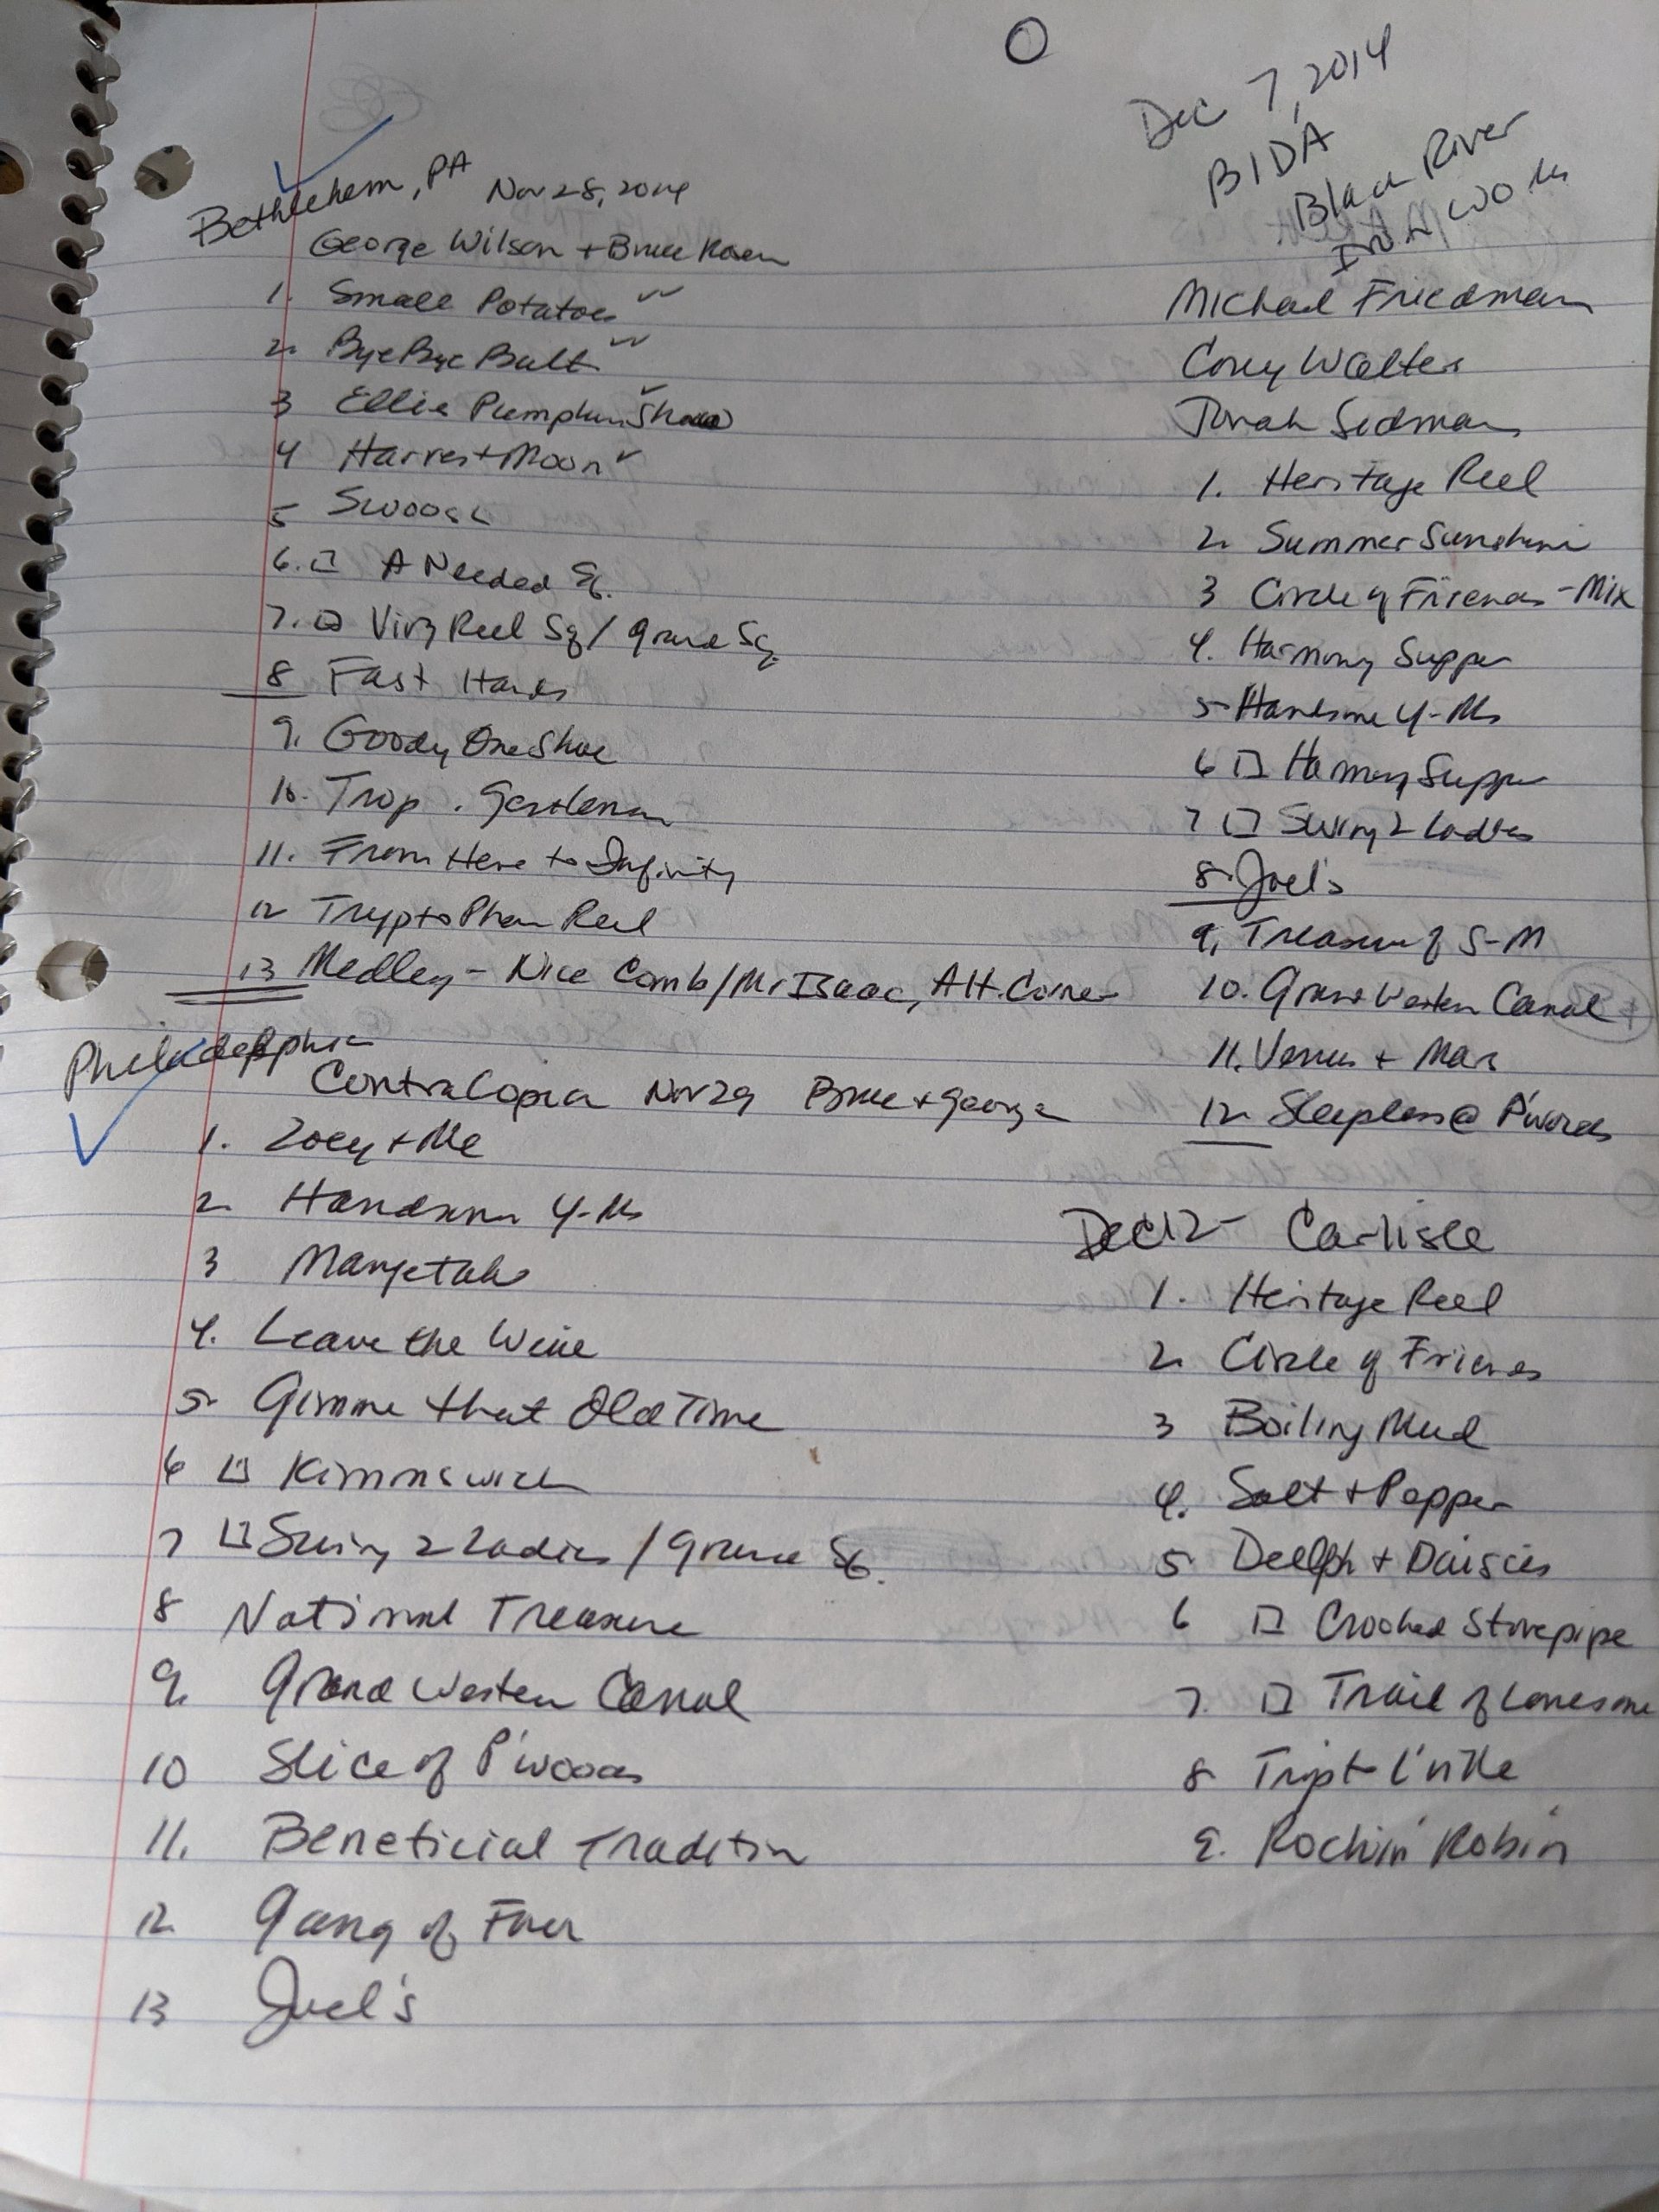 Bethlehem, PA Nov 28, 2014
George Wilson + Bruce Rosen
1. Small Potatoes ✓✓
2. Bye Bye Butt ✓✓
3 Ellie Pumpkin ✓
4 Harvest Moon ✓
5 Swoosh
6. □ A Needed Sq.
7. □ Virg Reel Sq / Grand Sq.
8 Fast Hands
9. Goody One Shoe
10. Trop. Gentleman
11. From Here to Infinity
12 Tryptophan Reel
13 Medley - Nice Comb / Mr Isaac, Alt. Corner
Philadelphia
ContraCopia Nov 29 Bruce + George
1. Zoey + Me
2 Handsome Y-Ms
3 Marjetahs
4. Leave the Wine
5 Gimme that Old Time
6 □ Kimmswick
7 □ Swing 2 Ladies / Grand Sq.
8 National Treasure
9. Grand Western Canal
10 Slice of P'woods
11. Beneficial Tradition
12 Gang of Four
13 Joel's
Dec 7, 2014
BIDA
Black River
Ironworks
Michael Friedman
Corey Walters
Jonah Sidman
1. Heritage Reel
2 Summer Sunshine
3 Circle of Friends - Mix
4. Harmony Supper
5 Handsome Y-Ms
6 □ Harmony Supper
7 □ Swing 2 Ladies
8 Joel's
9, Treasure of S-M
10. Grand Western Canal
11. Venus + Mars
12 Sleepless @ P'woods
Dec 12 - Carlisle
1. Heritage Reel
2 Circle of Friends
3 Boiling Mud
4. Salt + Pepper
5 Delph + Daisies
6 □ Crooked Stovepipe
7. □ Trail of Lonesome
8 Trip to L'ville
9. Rockin' Robin